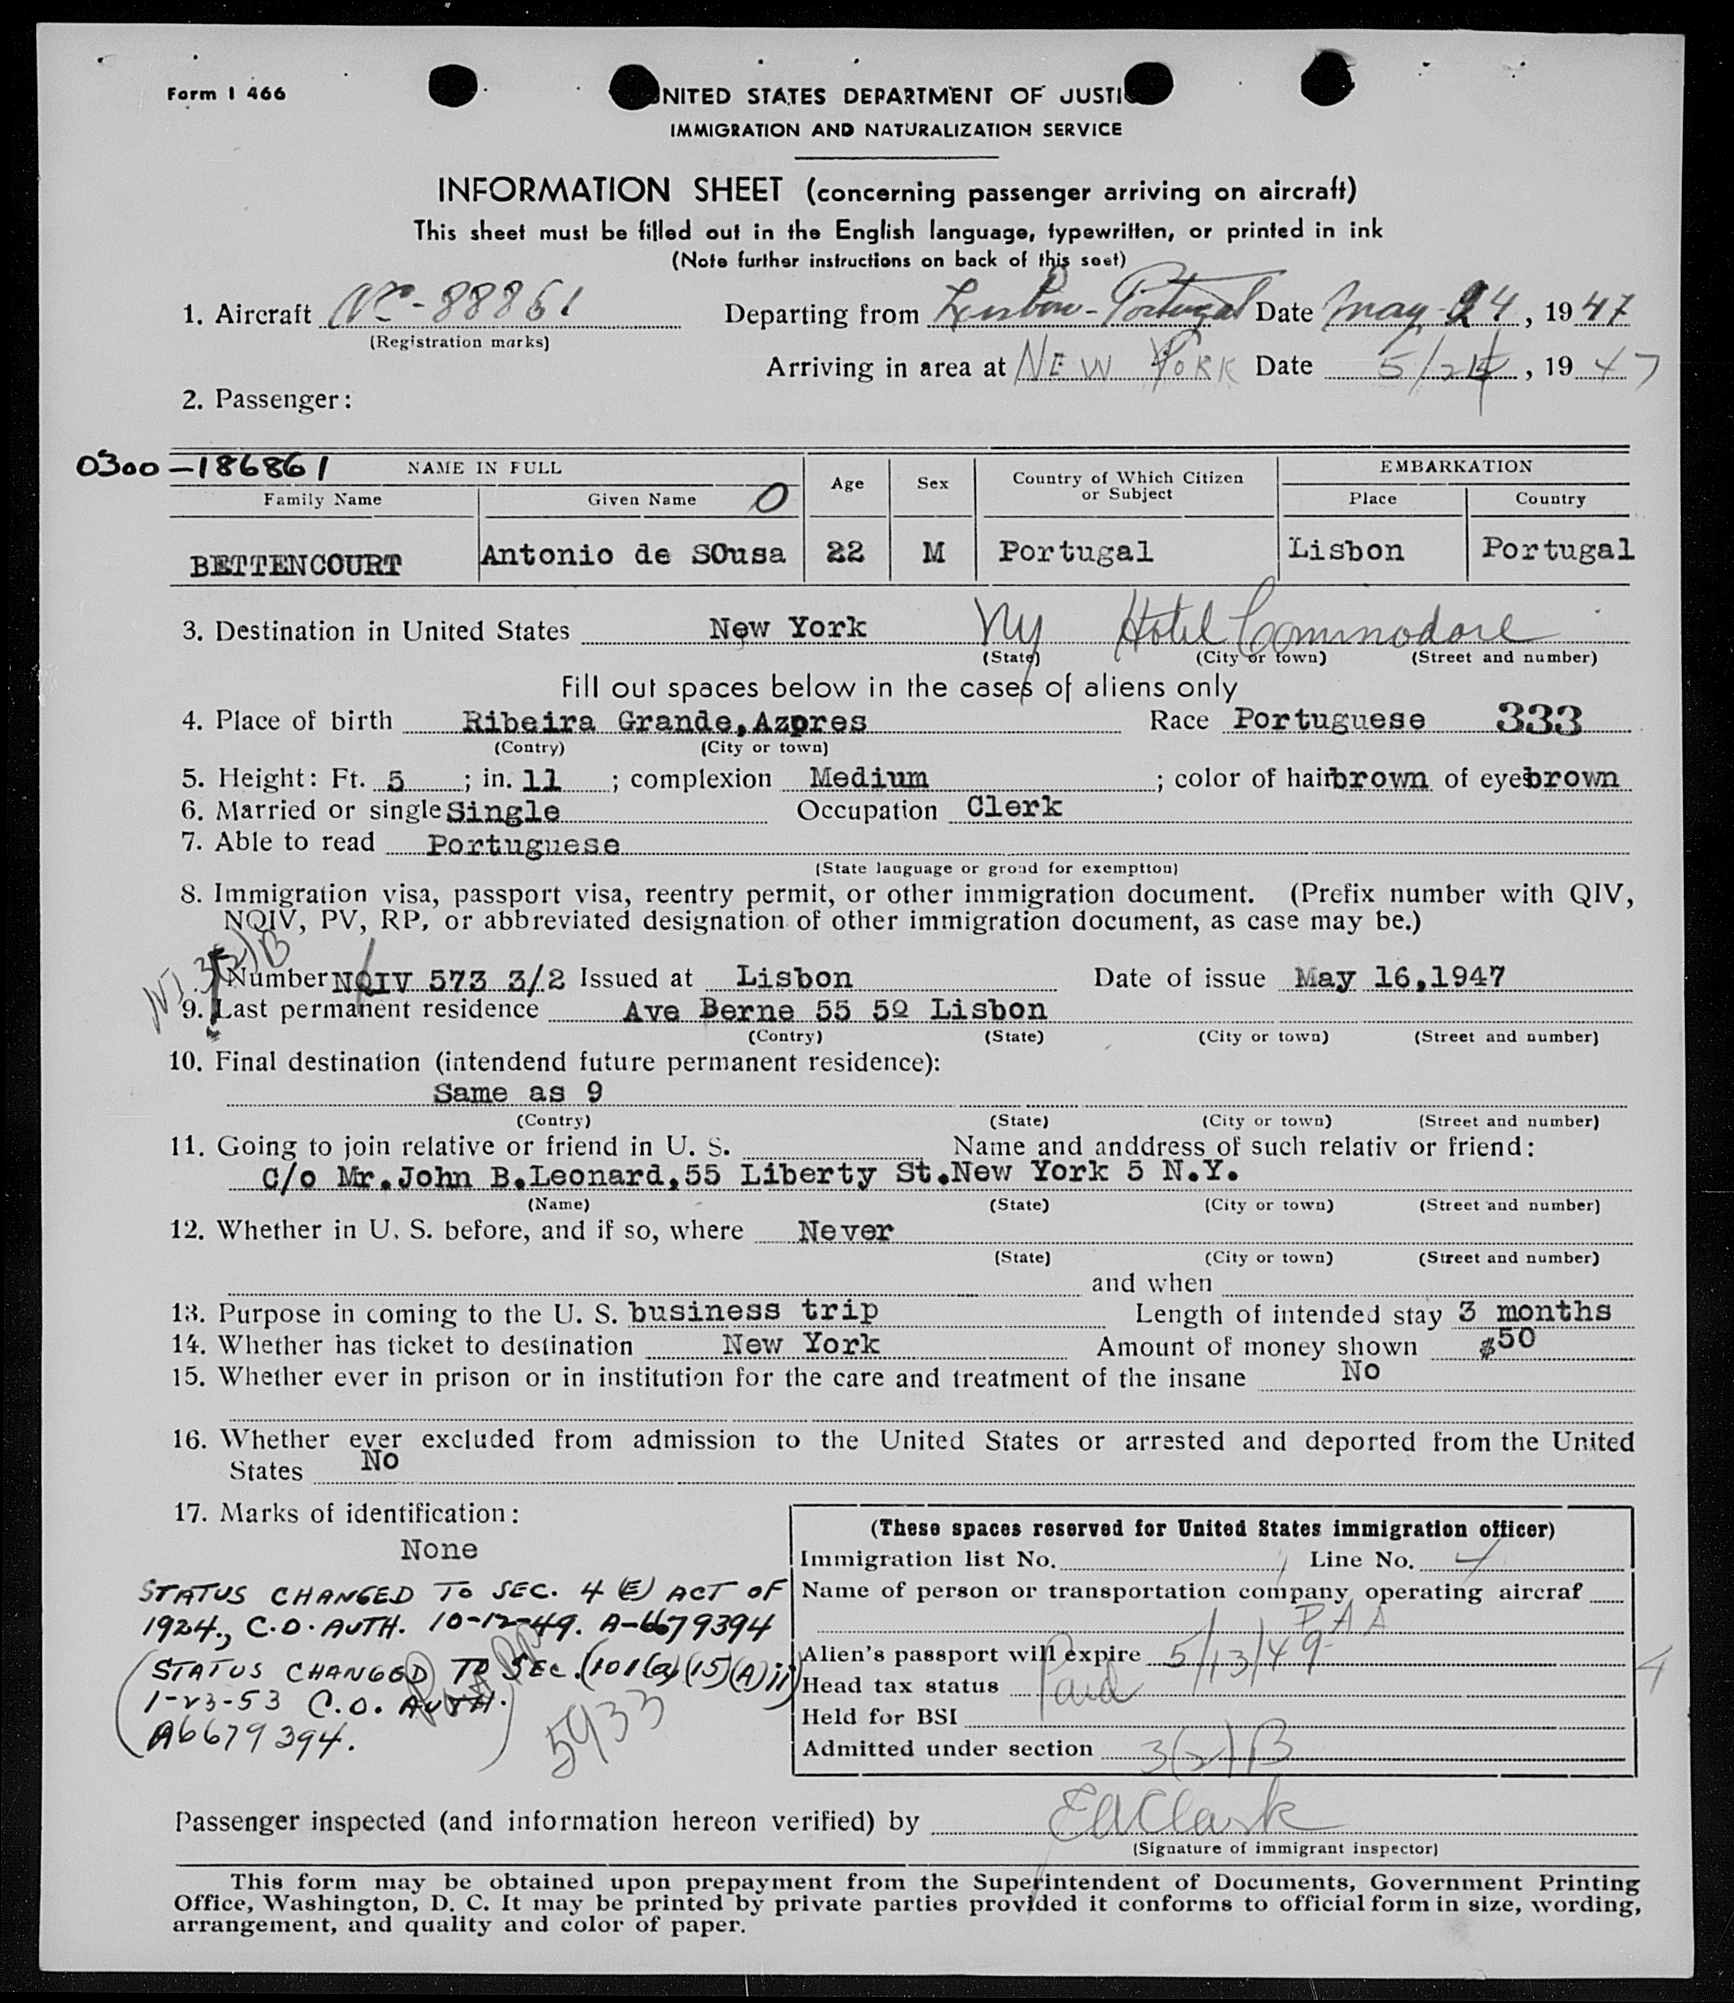 Form I 466
UNITED STATES DEPARTMENT OF JUSTI
IMMIGRATION AND NATURALIZATION SERVICE
INFORMATION SHEET (concerning passenger arriving on aircraft)
This sheet must be filled out in the English language, typewritten, or printed in ink
(Note further instructions on back of this seet)
1. Aircraft NC-88861 Departing from Lisbon-Portugal Date May 24, 1947
(Registration marks)
Arriving in area at NEW YORK Date 5/24, 1947
2. Passenger:
0300-186861 NAME IN FULL Age Sex Country of Which Citizen or Subject EMBARKATION
Family Name Given Name O Place Country
BETTENCOURT Antonio de SOusa 22 M Portugal Lisbon Portugal
3. Destination in United States New York NY Hotel Commodore
(State) (City or town) (Street and number)
Fill out spaces below in the cases of aliens only
4. Place of birth Ribeira Grande,Azores Race Portuguese 333
(Contry) (City or town)
5. Height: Ft. 5 ; in. 11 ; complexion Medium ; color of hair brown of eyes brown
6. Married or single Single Occupation Clerk
7. Able to read Portuguese
(State language or groud for exemptton)
8. Immigration visa, passport visa, reentry permit, or other immigration document. (Prefix number with QIV,
NQIV, PV, RP, or abbreviated designation of other immigration document, as case may be.)
3(2)B
Number NQIV 573 3/2 Issued at Lisbon Date of issue May 16,1947
9. Last permanent residence Ave Berne 55 5º Lisbon
(Contry) (State) (City or town) (Street and number)
10. Final destination (intendend future permanent residence):
Same as 9
(Contry) (State) (City or town) (Street and number)
11. Going to join relative or friend in U. S. Name and anddress of such relativ or friend:
C/o Mr.John B.Leonard,55 Liberty St.New York 5 N.Y.
(Name) (State) (City or town) (Street and number)
12. Whether in U. S. before, and if so, where Never
(State) (City or town) (Street and number)
and when
13. Purpose in coming to the U. S. business trip Length of intended stay 3 months
14. Whether has ticket to destination New York Amount of money shown $50
15. Whether ever in prison or in institution for the care and treatment of the insane No
16. Whether ever excluded from admission to the United States or arrested and deported from the United
States No
17. Marks of identification:
None
STATUS CHANGED TO SEC. 4 (E) ACT OF
1924., C.O. AUTH. 10-12-49. A-6679394
(STATUS CHANGED TO SEC. (101(a)(15)(A)ii)
1-23-53 C.O. AUTH.
A6679394.)
5933
(These spaces reserved for United States immigration officer)
Immigration list No. 1 Line No. 4
Name of person or transportation company operating aircraf
PAA
Alien's passport will expire 5/13/49
Head tax status Paid
Held for BSI
Admitted under section 3(2)B
4
Passenger inspected (and information hereon verified) by EAClark
(Signature of immigrant inspector)
This form may be obtained upon prepayment from the Superintendent of Documents, Government Printing
Office, Washington, D. C. It may be printed by private parties provided it conforms to official form in size, wording,
arrangement, and quality and color of paper.